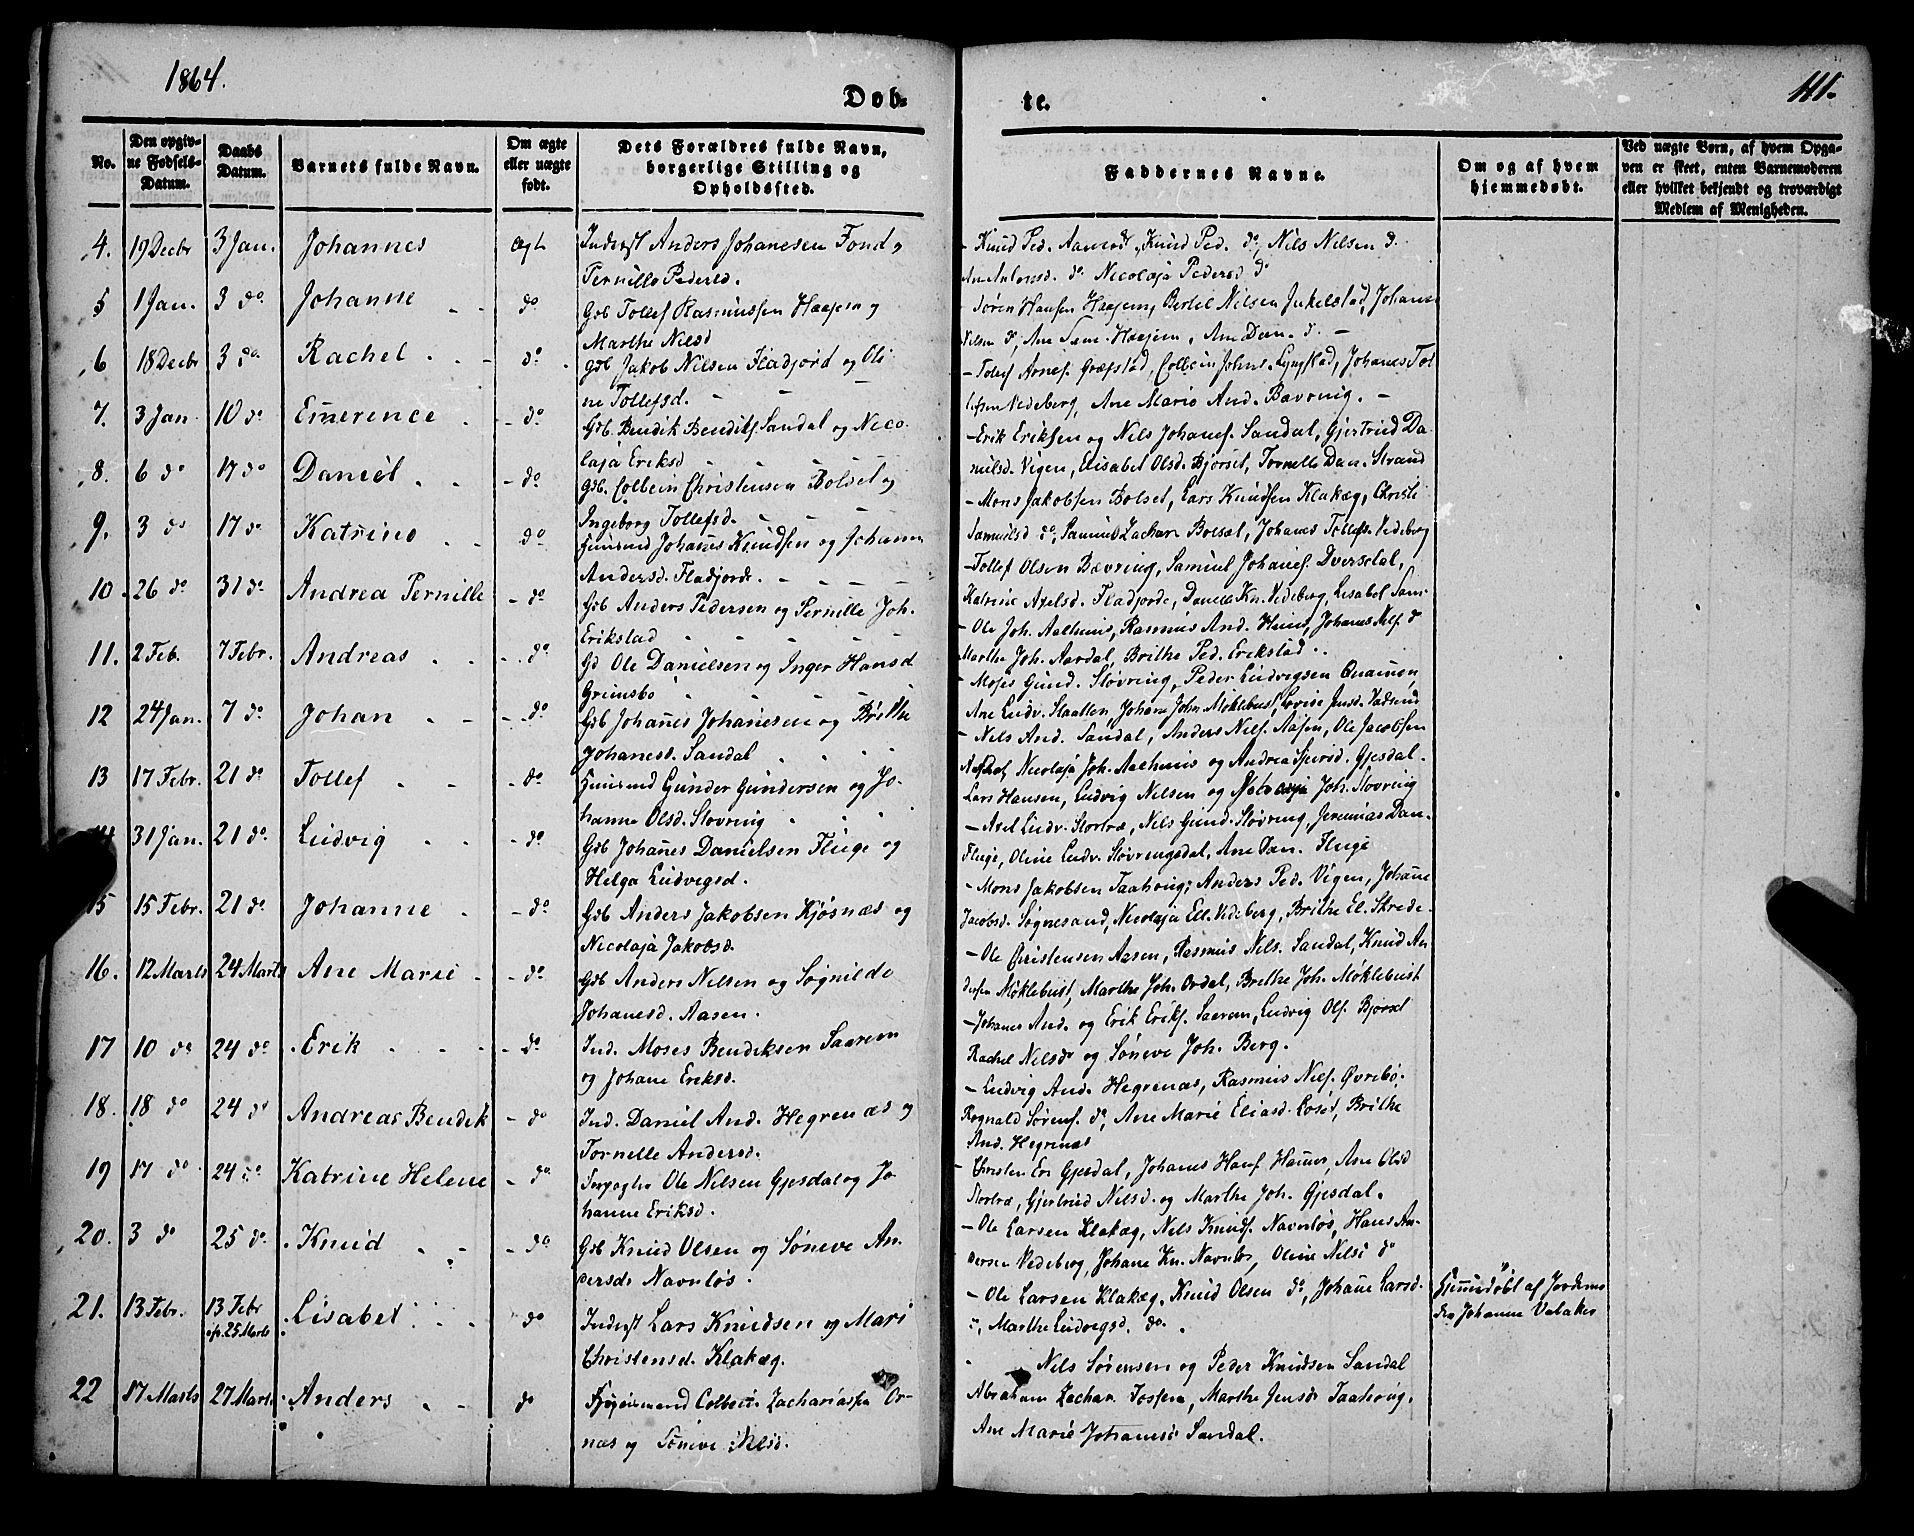 1864.
Døb-
te.
111.
No.
Den opgiv-
ne Fødsels-
Datum.
Daabs
Datum.
Barnets fulde Navn.
Om ægte
eller uægte
født.
Dets Forældres fulde Navn,
borgerlige Stilling og
Opholdssted.
Faddernes Navne.
Om og af hvem
hjemmedøbt.
Ved uægte Børn, af hvem Opga-
ven er skeet, enten Barnemoderen
eller hvilket bekjendt og troværdigt
Medlem af Menigheden.
4. 19 Decbr 3 Jan. Johannes ægt Inderst Anders Johanesen Fond og
Pernille Pedersd.
- Knud Ped. Aamodt, Knud Ped. do, Nils Nilsen do.
Ane Antonsd. do Nicolaja Pedersd do
5 1 Jan. 3 do. Johanne do Gdb Tollef Rasmussen Haajem og
Marthe Nilsd
- Søren Hansen Haajem, Bertel Nilsen Inkelstad, Johan
Nilsen do, Ane Haajem, Ane Dan. do. -
6 18 Decbr 3 do. Rachel do. Gdb Jakob Nilsen Fladjord og Oli
ne Tollefsd.
- Tollef Arnes. Græpstad, Colbein Johns. Lyngstad, Johanes Tol
lefsen Vedeberg, Ane Marie And. Bævring. -
7. 3 Jan. 10 do Emerence - do. Gdb. Bendik Bendiks. Sandal og Nico
laja Eriksd
- Erik Eriksen og Nils Johanes. Sandal, Gjertrud Da-
nielsd. Vigen, Elisabet Olsd. Bjorset, Tornelle Dan. Strand
8. 6 do 17 do Daniel - do Gdb. Colbein Christensen Bolset og
Ingeborg Tollefsd.
- Mons Jakobsen Bolset, Lars Knudsen Klakæg, Christi
Samuelsd do, Samuel Zachar. Bolset, Johanes Tollefs. Vedeberg
9. 3 do 17 do Katrine do Huusmd Johanes Knudsen og Johanne
Andersd. Fladjorde.
Tollef Olsen Bævring, Samuel Johanes. Dversdal,
Katrine Axelsd. Fladjorde, Daniel Kn. Vedeberg, Lisabet Sam-
10 26 do 31 do Andrea Pernille - do Gdb Anders Pedersen og Pernille Joh.
Erikstad
- Ole Joh. Aalhuus, Rasmus And. Huus, Johanes Nils. do
Marthe Joh. Aardal, Brithe Ped. Erikstad.
11. 2 Feb. 7 Febr. Andreas do Gd Ole Danielsen og Inger Hansd
Grimsbo
- Moses Gund. Støvring, Peder Ludvigsen Qvamen,
Ane Ludv. Slaatten, Johane John. Møklebust, Lovise Jens.
12 24 Jan. 7 do Johan - do Gdb Johanes Johanesen og Brithe
Johanesd. Sandal
- Nils And. Sandal, Anders Nils. Aasen, Ole Jacobsen
Nicolaja Joh. Aalhuus og Andrea Gjesdal.
13 17 Febr. 21 do Tollef - do Huusmd Gunder Gundersen og Jo-
hanne Olsd. Støvring
Lars Hansen, Ludvig Nilsen og Joh. Støvring
31 Jan. 21 do. Ludvig - do. Gdb Johanes Danielsen Fluge og
Helga Ludvigsd.
- Axel Ludv. Stortræ, Nils Gund. Støvring, Jeremias Dan-
Fluge, Oline Ludv. Støvringsdal, Ane Dan. Fluge
15 15 Febr. 21 do. Johanne - do. Gdb Anders Jakobsen Kjøsnæs og
Nicolaja Jakobsd.
- Mons Jakobsen Taahoug, Anders Ped. Vigen, Johane
Jacobsd. Søgnesand, Nicolaja Ell. Vedeberg, Brithe El. Skrede-
16. 12 Marts 24 Marts Ane Marie - do. Gdb Anders Nilsen og Søgnilde
Johanesd. Aasen.
- Ole Christensen Aasen, Rasmus Nils. Sandal, Knud An
dersen Møklebust, Marthe Joh. Ordal, Brithe Joh. Møklebust
17 10 do 24 do Erik - do Ind. Moses Bendiksen Saarem
og Johane Eriksd.
- Johanes And. og Erik Eriks. Saarem, Ludvig Ols. Bjorset
Rachel Nilsd og Søneve Joh. Berg.
18. 18 do 24 do Andreas Bendik - do Ind. Daniel And. Hegrenæs og
Tornelle Andersd.
- Ludvig And. Hegrenæs, Rasmus Nils. Øvrebø.
Rognald Sørens. do, Ane Marie Eliasd. Loset, Brithe
And. Hegrenæs
19 17 do 24 do Katrine Helene - do Ole Nilsen Gjesdal og Jo
hanne Eriksd.
- Christen Er. Gjesdal, Johanes Hans. Ane Olsd
Stortræ, Gjertrud Nilsd. og Marthe Joh. Gjesdal.
20. 3 do 25 do. Knud - do Gdb Knud Olsen og Søneve An.
dersd. Navnløs.
- Ole Larsen Klakæg, Nils Knuds. Navnløs, Hans An-
dersen Vedeberg, Johane Kn. Navnløs, Oline Nilsd do
21. 13 Febr. 13 Febr Lisabet do Inderst Lars Knudsen og Mari
25 Marts
Christensd. Klakæg.
- Ole Larsen Klakæg, Knud Olsen do, Johane Larsd.
", Marthe Ludvigsd. do.
Hjemmedøbt af Jordemo
der Johanne Valaker
22 17 Marts 27 Marts Anders do Colbein Zachariassen Or-
næs og Søneve Nilsd.
Nils Sørensen og Peder Knudsen Sandal
Abraham Zachar. Marthe Jensd Taahoug,
Ane Marie Johanesd Sandal.